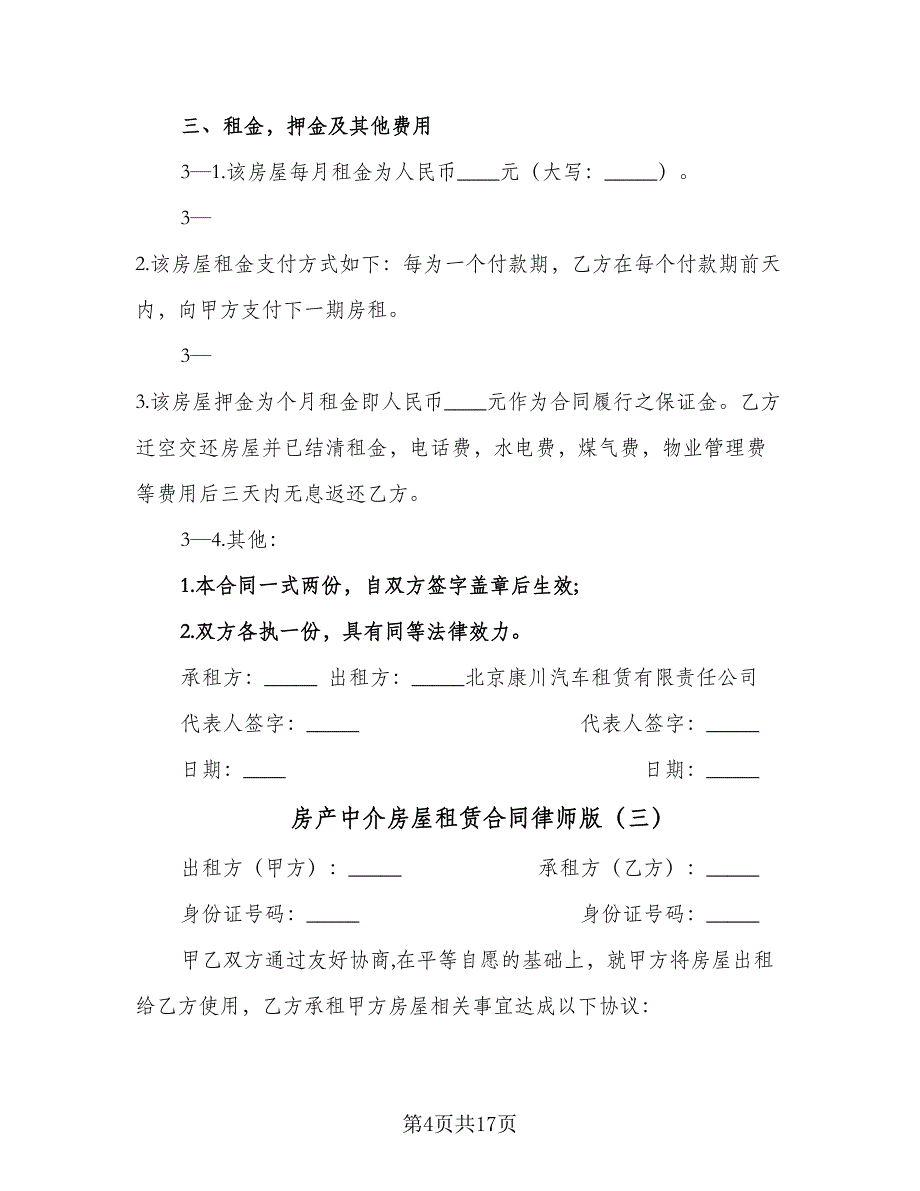 三、租金，押金及其他费用
3—1.该房屋每月租金为人民币____元（大写：_____）。
3—
2.该房屋租金支付方式如下：每为一个付款期，乙方在每个付款期前天
内，向甲方支付下一期房租。
3—
3.该房屋押金为个月租金即人民币____元作为合同履行之保证金。乙方
迁空交还房屋并已结清租金，电话费，水电费，煤气费，物业管理费
等费用后三天内无息返还乙方。
3—4.其他：
1.本合同一式两份，自双方签字盖章后生效;
2.双方各执一份，具有同等法律效力。
承租方：_____ 出租方：_____北京康川汽车租赁有限责任公司
代表人签字：_____ 代表人签字：_____
日期：____ 日期：_____
房产中介房屋租赁合同律师版（三）
出租方（甲方）：_____ 承租方（乙方）：_____
身份证号码：_____ 身份证号码：_____
甲乙双方通过友好协商,在平等自愿的基础上，就甲方将房屋出租
给乙方使用，乙方承租甲方房屋相关事宜达成以下协议：
第4页共17页